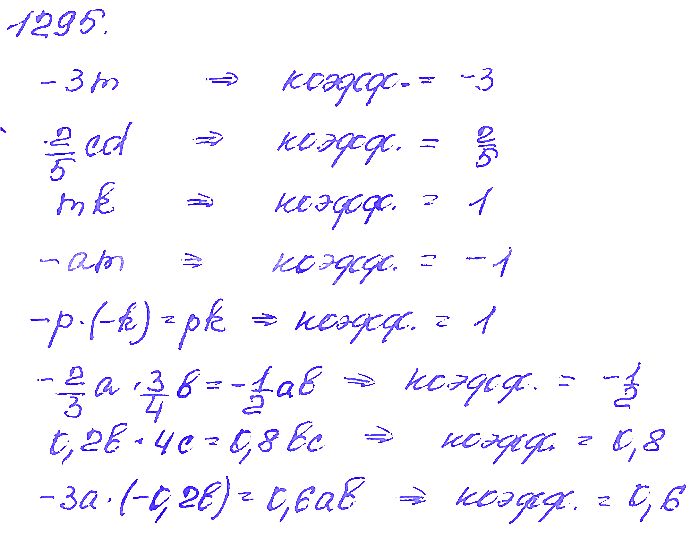 1295.
-3m ⇒ коэфф. = -3
2/5 cd ⇒ коэфф. = 2/5
mk ⇒ коэфф. = 1
-am ⇒ коэфф. = -1
-p·(-k) = pk ⇒ коэфф. = 1
-2/3 a · 3/4 b = -1/2 ab ⇒ коэфф. = -1/2
0,2b · 4c = 0,8bc ⇒ коэфф. = 0,8
-3a·(-0,2b) = 0,6ab ⇒ коэфф. = 0,6